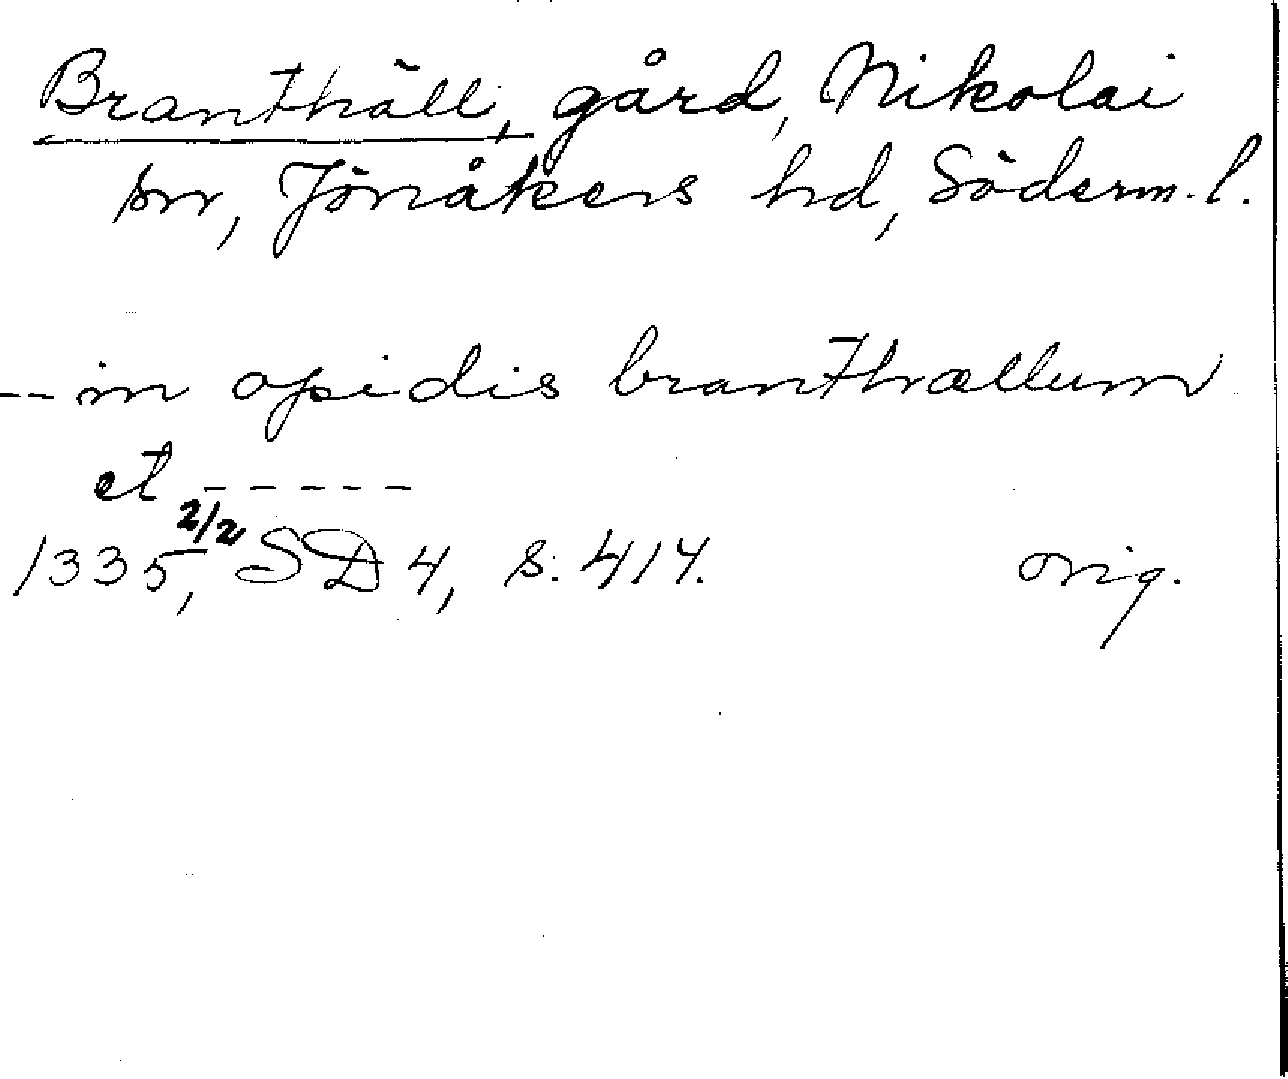 Branthäll, gård, Nikolai
sn, Jönåkers hd, Söderm. l.
-- in opidis branthællum
et -----
1335 2/2, SD 4, s. 414. orig.